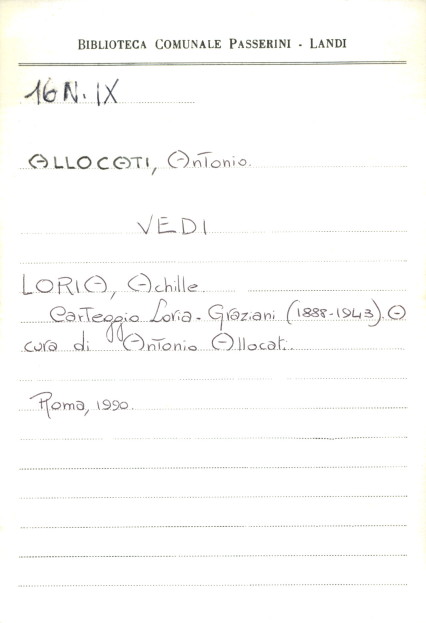 BIBLIOTECA COMUNALE PASSERINI - LANDI
16 N. IX
ALLOCATI, Antonio.
VEDI
LORIA, Achille.
Carteggio Loria - Graziani (1888-1943). A
cura di Antonio Allocati.
Roma, 1990.